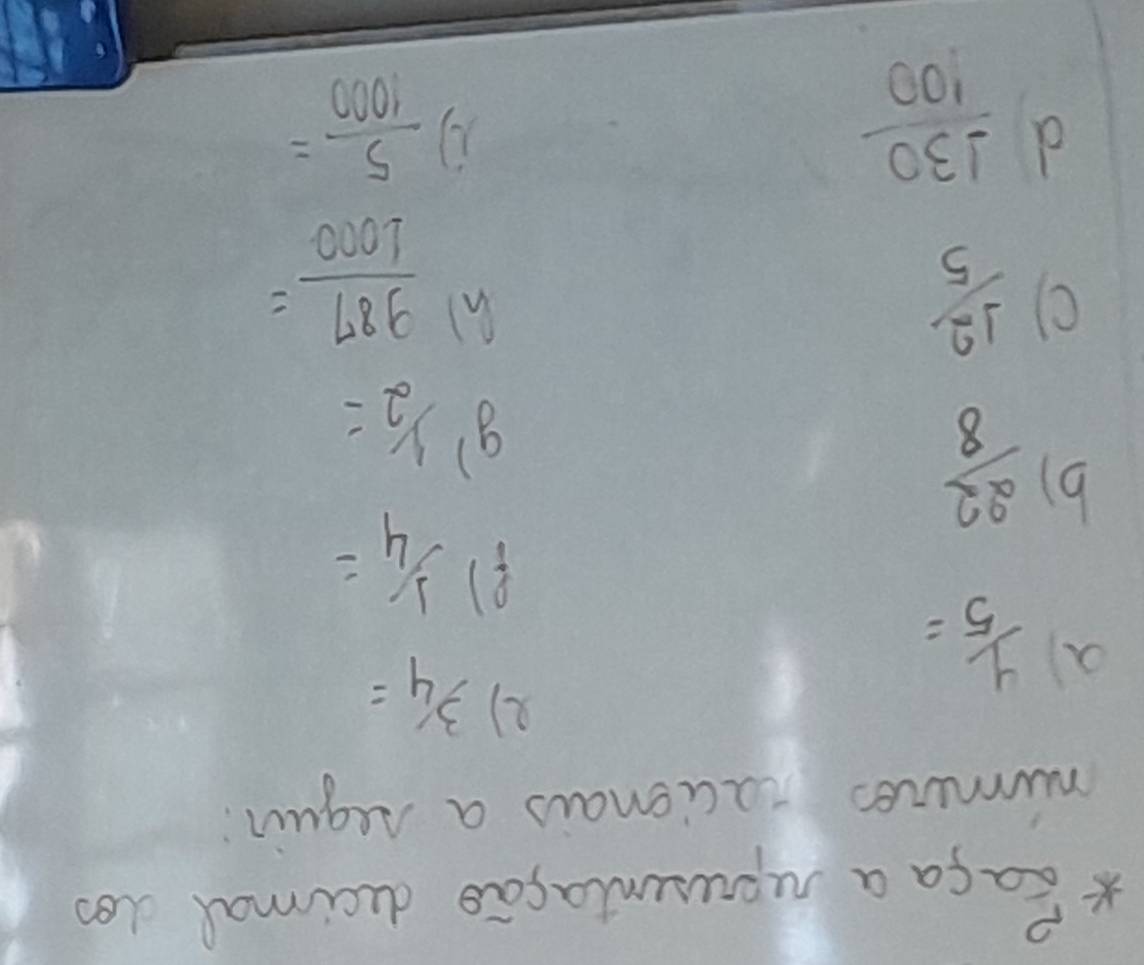 * Faça a representação decimal dos
números racionais a seguir:
a) 1/5 =
b) 22/8
c) 12/5
d) 130/100
e) 3/4 =
f) 1/4 =
g) 1/2 =
h) 987/1000 =
i) 5/1000 =